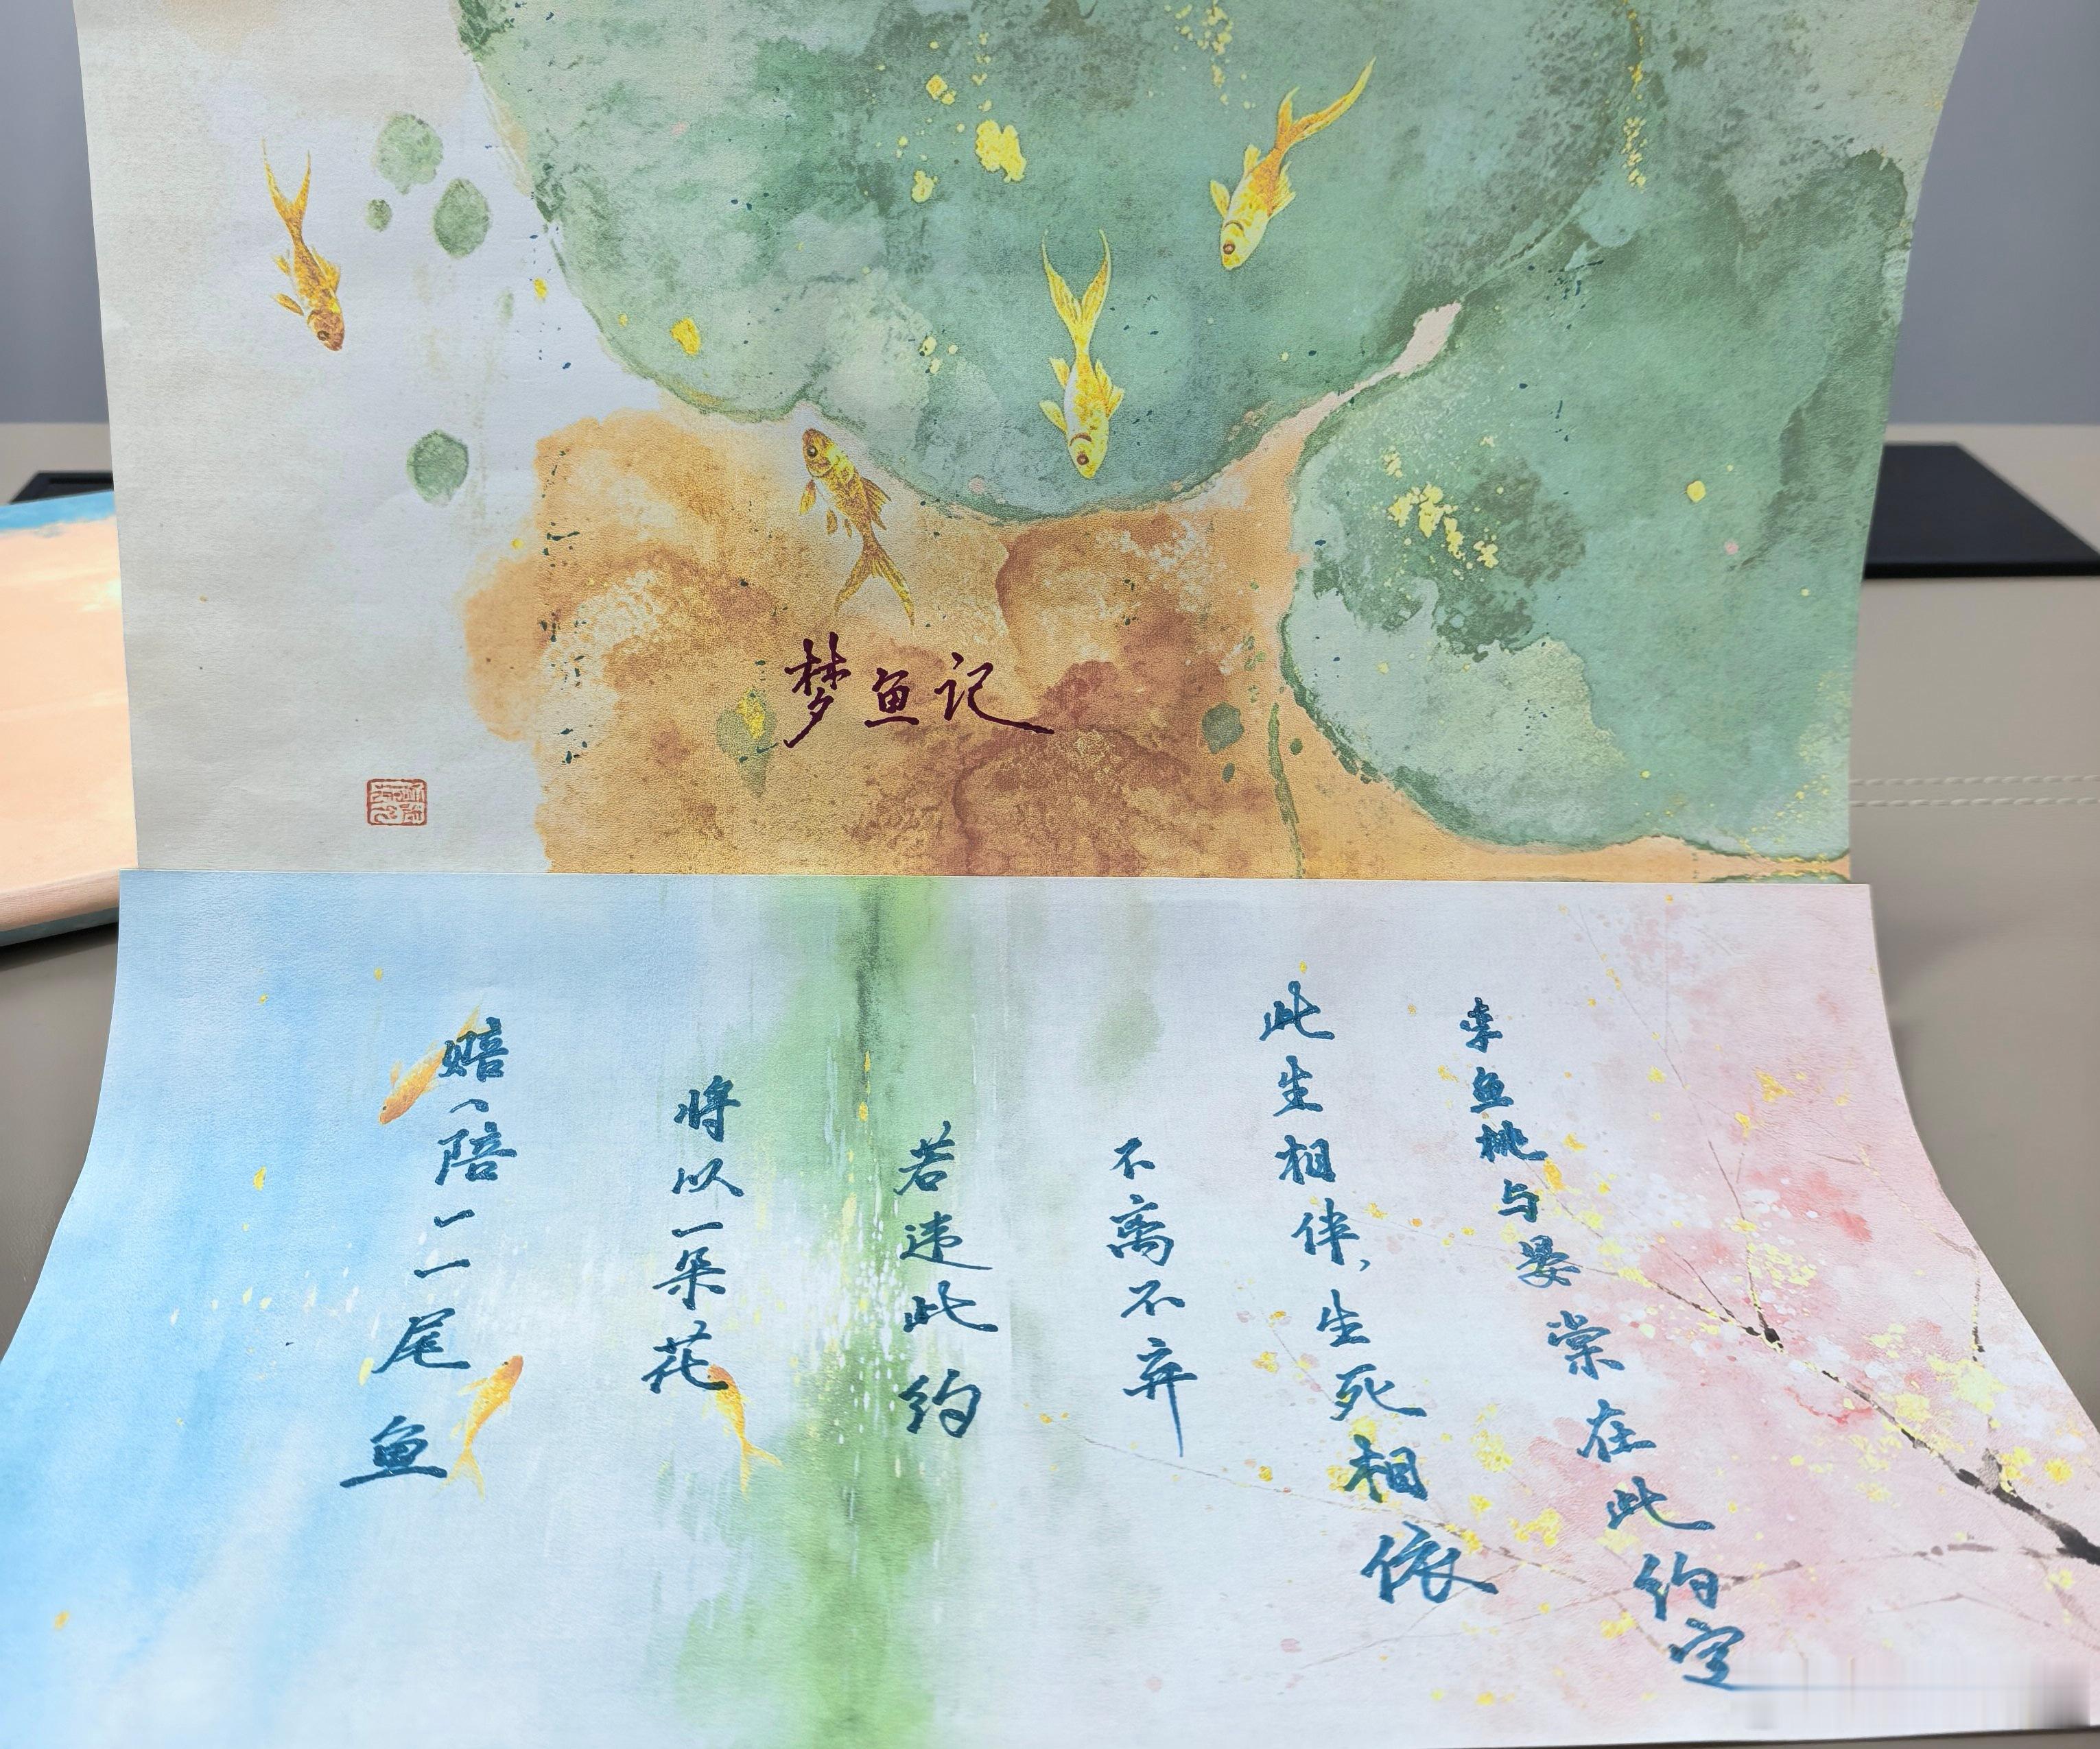 梦鱼记
李鱼桃与晏棠在此约定
此生相伴，生死相依
不离不弃
若违此约
将以一朵花
赔（陪）一尾鱼